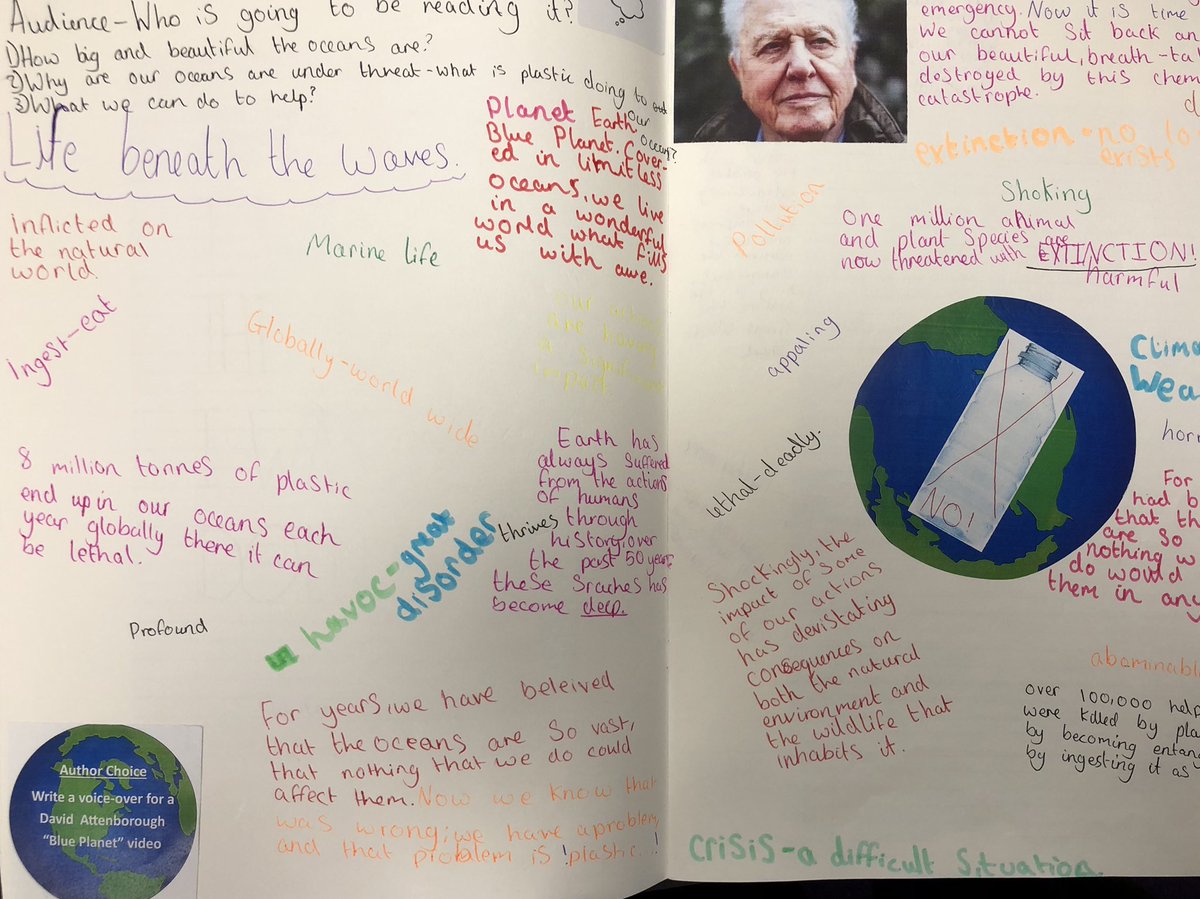 Audience-Who is going to be reading it?
1)How big and beautiful the oceans are?
2)Why are our oceans are under threat-what is plastic doing to our
ocean?
3)What we can do to help?
Life beneath the waves.
Planet Earth,
Blue Planet. Cover-
ed in limitless
oceans, we live
in a wonderful
world what fills
us with awe.
Inflicted on
the natural
world.
Marine life
ingest-eat
Globally-world wide
our actions
are having
a significant
impact.
8 million tonnes of plastic
end up in our oceans each
year globally there it can
be lethal.
Earth has
always suffered
from the actions
of humans
through
history, over
the past 50 years
these Sraches has
become deep.
thrives
havoc-great
disorder
Profound
For years, we have beleived
that the oceans are so vast,
that nothing that we do could
affect them. Now we know that
was wrong; we have a problem,
and that problem is !plastic..!
Author Choice
Write a voice-over for a
David Attenborough
"Blue Planet" video
emergency. Now it is time
We cannot sit back an
our beautiful, breath-ta
destroyed by this chem
catastrophe.
d
extinction-no lo
exists
Pollution
Shoking
One million animal
and plant species are
now threatened with EXTINCTION!
harmful
appaling
Clima
Wea
hor
NO!
lethal-deadly.
For
had b
that th
are so
nothing w
do would
them in any
Shockingly, the
impact of some
of our actions
has devistating
consequences on
both the natural
environment and
the wildlife that
inhabits it.
abaminable
over 100,000 help
were killed by pla
by becoming entan
by ingesting it as
Crisis-a difficult situation.